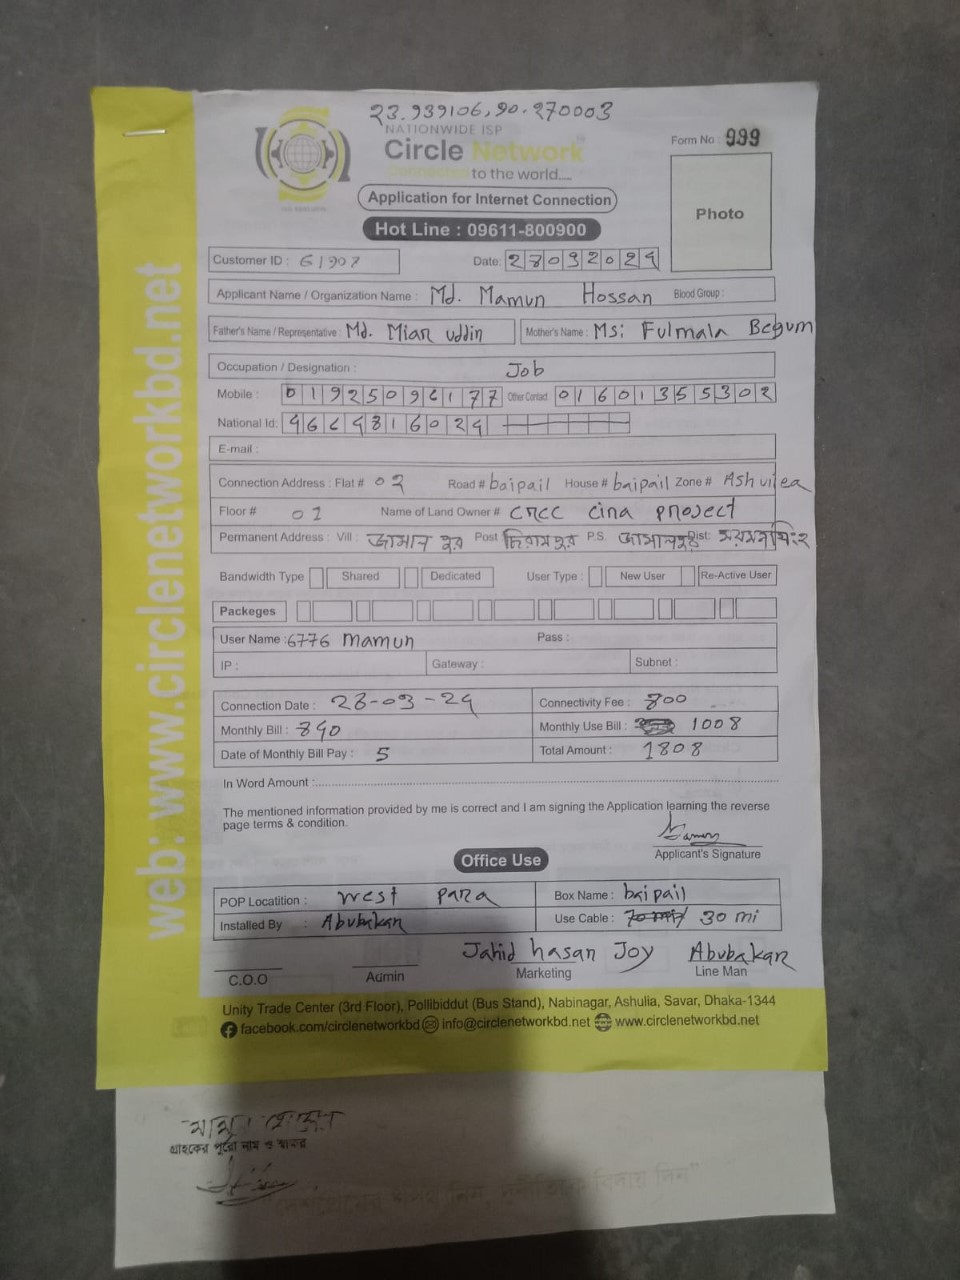 23.939106, 90.270003
NATIONWIDE ISP
Circle Network
Connected to the world.....
Form No : 999
Photo
Application for Internet Connection
Hot Line : 09611-800900
Customer ID : 61907
Date: 28032024
Applicant Name / Organization Name : Md. Mamun Hossan Blood Group :
Father's Name / Representative : Md. Mian uddin Mother's Name : Msi Fulmala Begum
Occupation / Designation : Job
Mobile : 01925096177 Other Contact 01601355302
National Id: 4664816024
E-mail :
Connection Address : Flat # 02 Road # baipail House # baipail Zone # Ashuliea
Floor # 01 Name of Land Owner # crcc cina project
Permanent Address : Vill : জামাল পুর Post P.S. জামালপুর Dist:
Bandwidth Type Shared Dedicated User Type : New User Re-Active User
Packeges
User Name : 6776 mamun Pass :
IP : Gateway : Subnet :
Connection Date : 28-03-24 Connectivity Fee : 800
Monthly Bill : 840 Monthly Use Bill : 1008
Date of Monthly Bill Pay : 5 Total Amount : 1808
In Word Amount :
The mentioned information provided by me is correct and I am signing the Application learning the reverse
page terms & condition.
Applicant's Signature
Office Use
POP Locatition : west para Box Name : baipail
Installed By : Abubakar Use Cable : 30 mi
Jahid hasan Joy Abubakar
C.O.O Admin Marketing Line Man
Unity Trade Center (3rd Floor), Pollibiddut (Bus Stand), Nabinagar, Ashulia, Savar, Dhaka-1344
facebook.com/circlenetworkbd info@circlenetworkbd.net www.circlenetworkbd.net
web: www.circlenetworkbd.net
গ্রাহকের পুরো নাম ও স্বাক্ষর